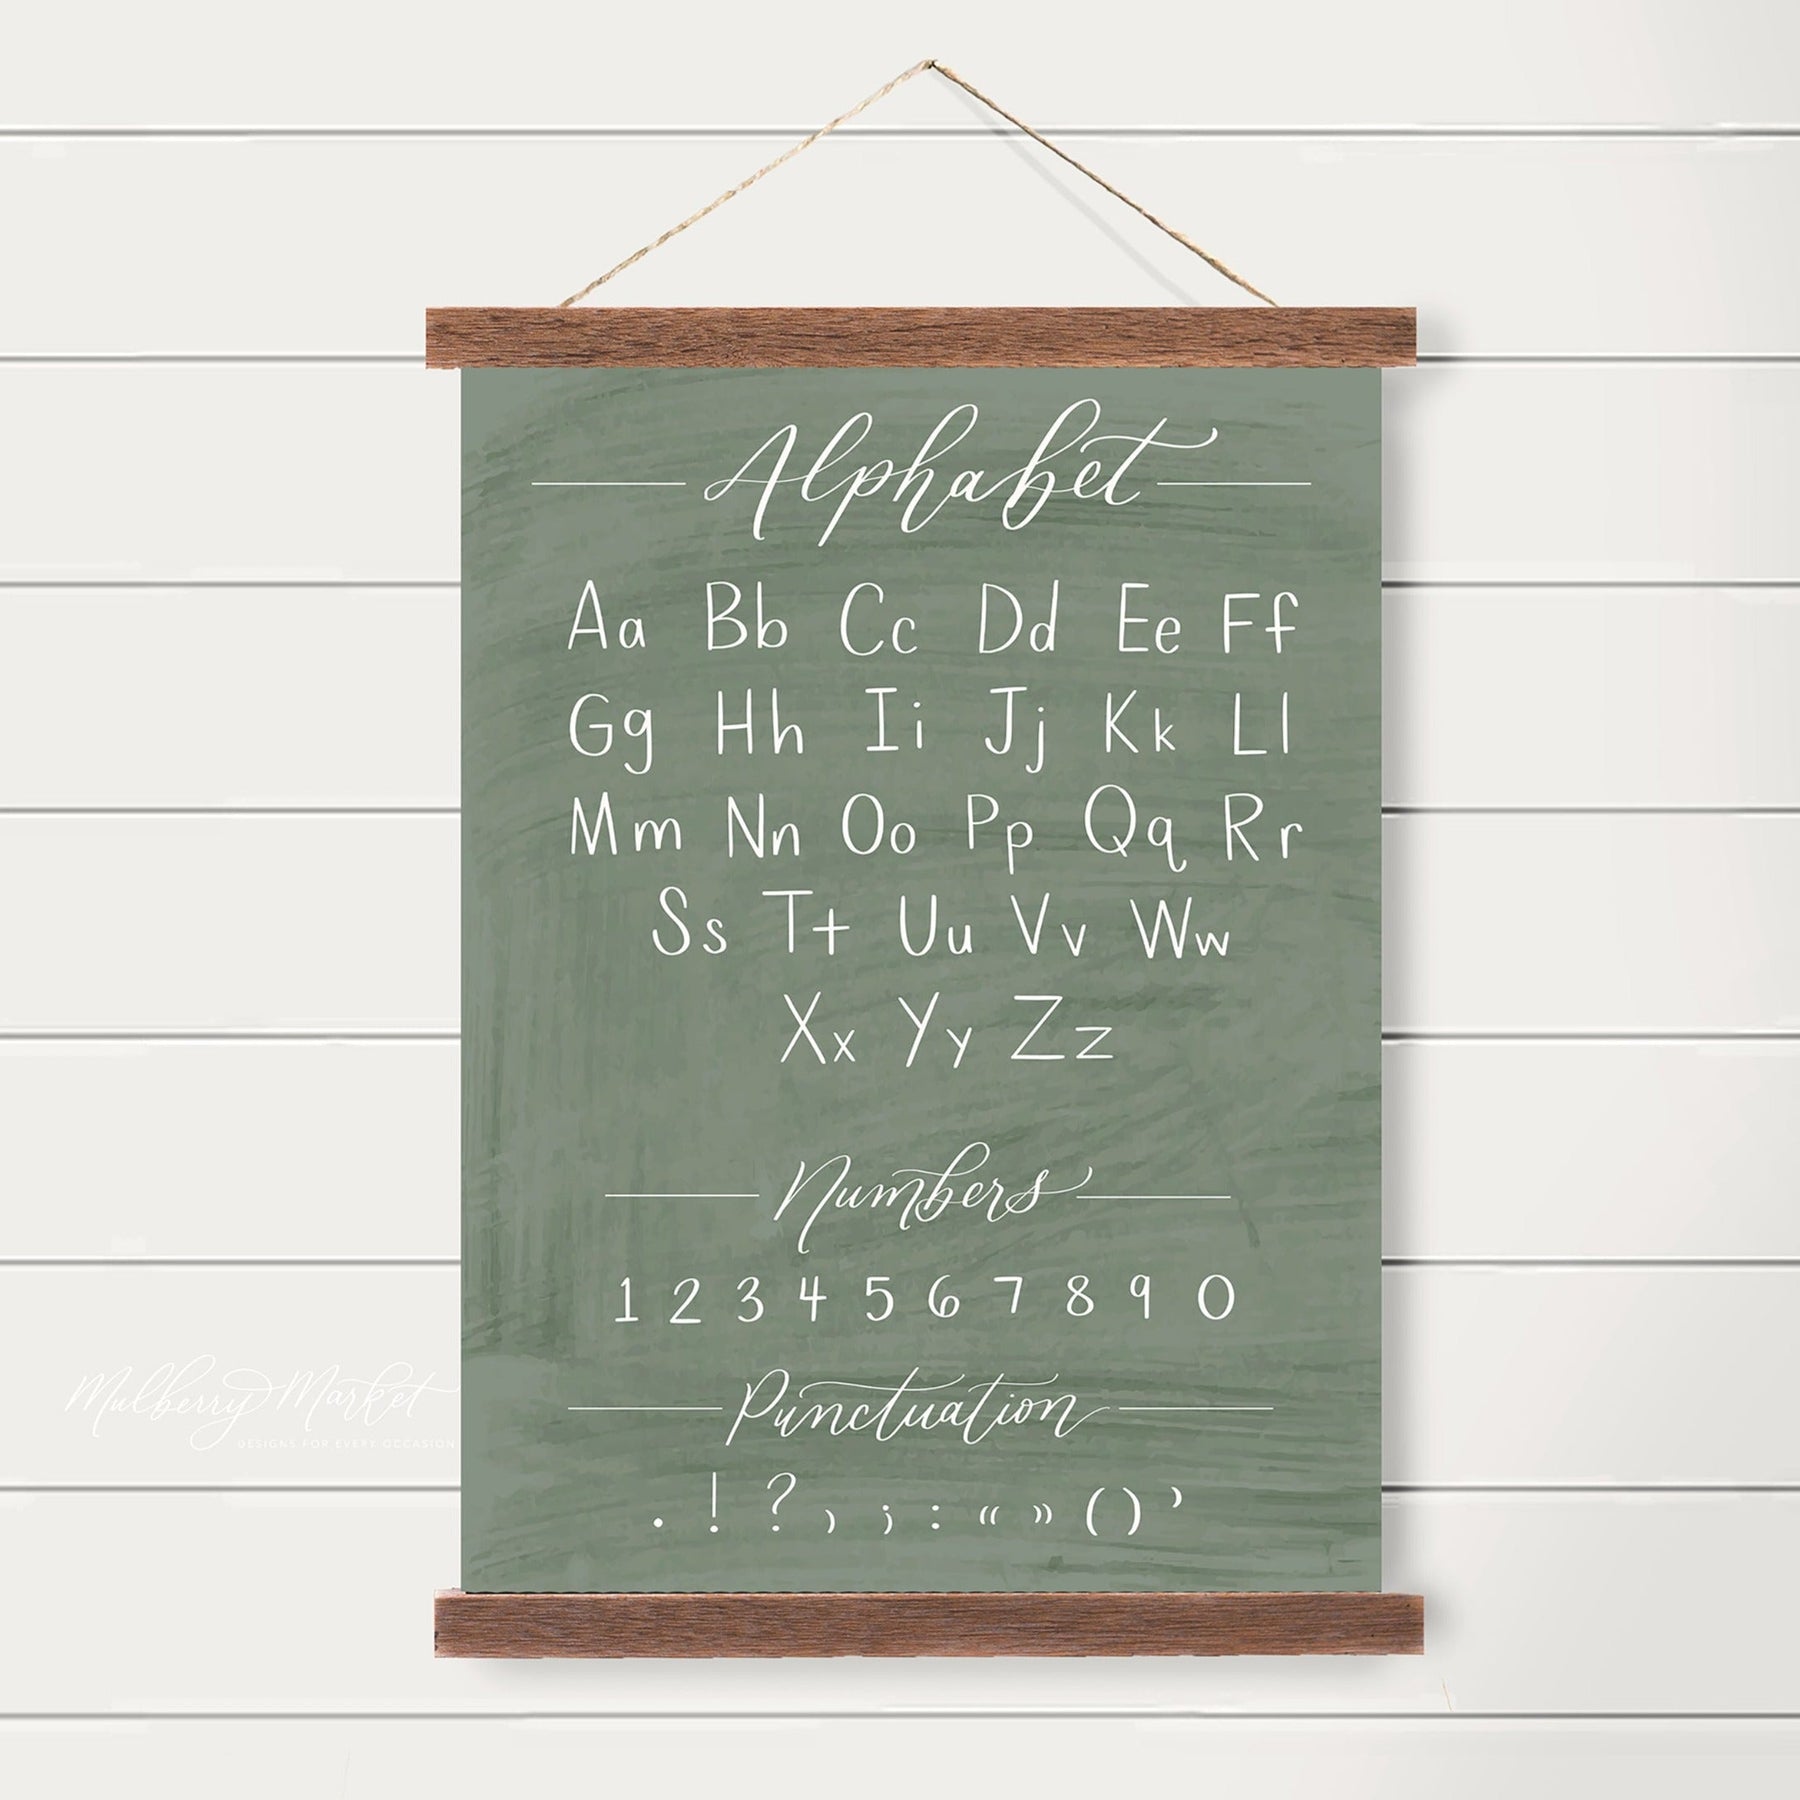 Alphabet
Aa Bb Cc Dd Ee Ff
Gg Hh Ii Jj Kk Ll
Mm Nn Oo Pp Qq Rr
Ss Tt Uu Vv Ww
Xx Yy Zz
Numbers
1 2 3 4 5 6 7 8 9 0
Mulberry Market
DESIGNS FOR EVERY OCCASION
Punctuation
. ! ? , ; : “ ” ( ) ’